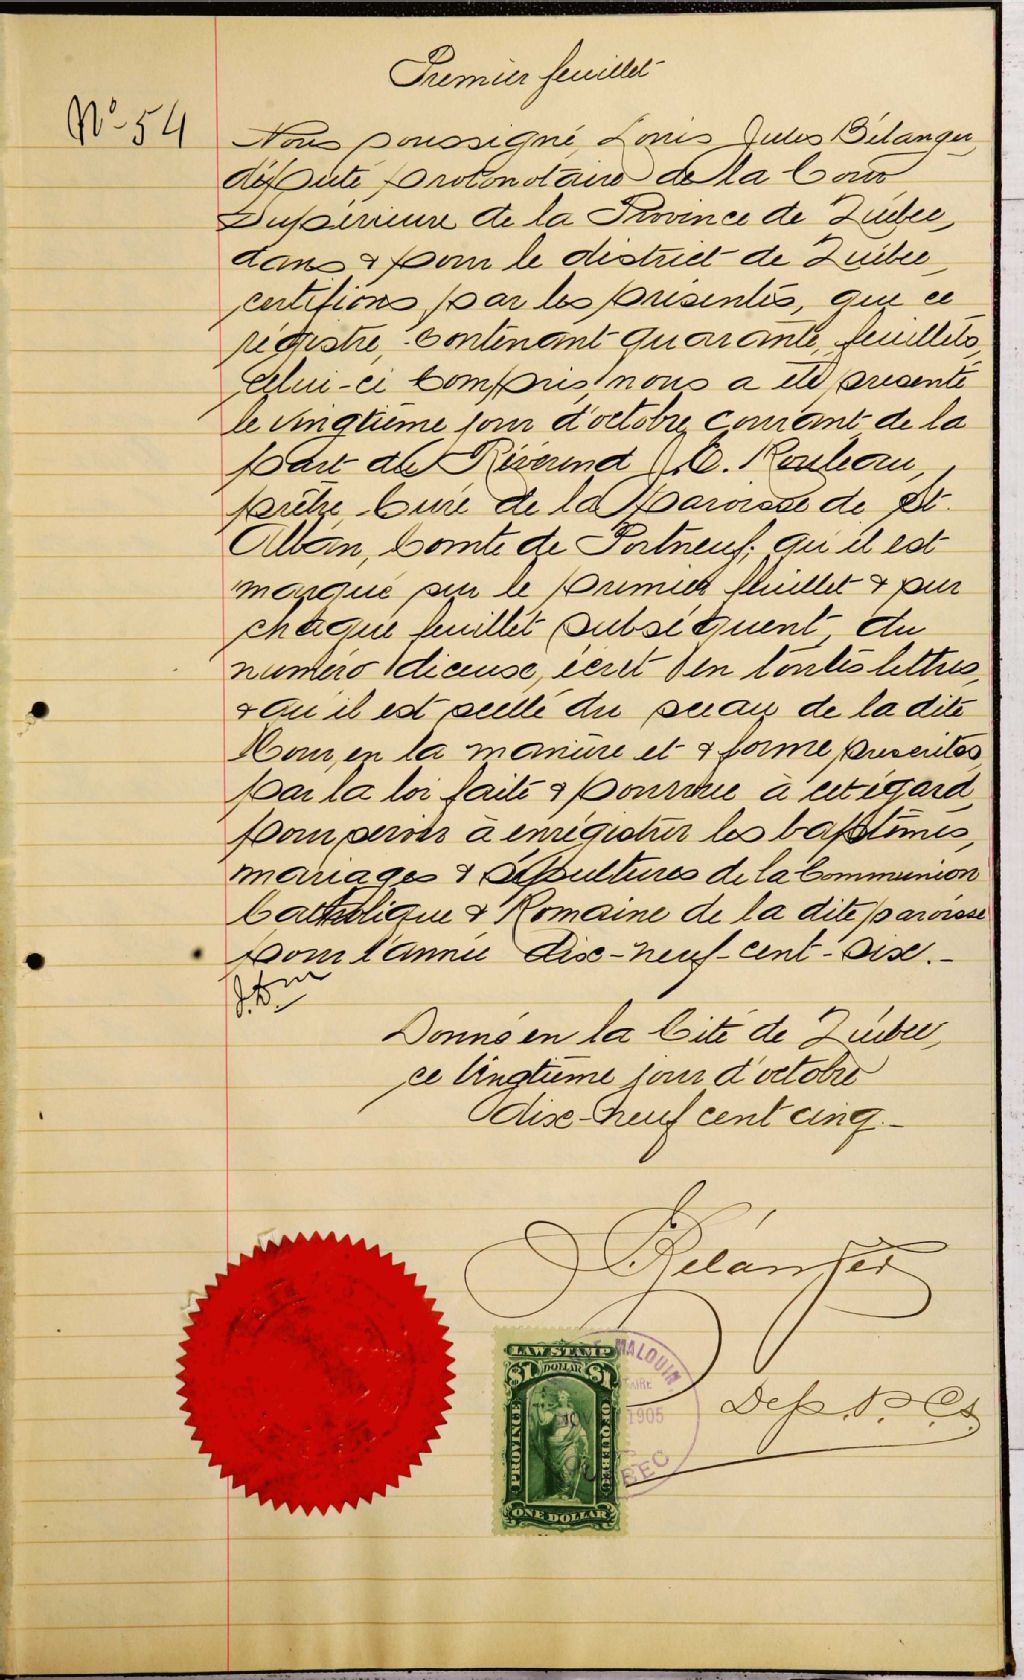 Premier feuillet
No-54
Nous soussigné, Louis Jules Bélanger,
député protonotaire de la Cour
Supérieure de la Province de Québec,
dans & pour le district de Québec,
certifions par les présentes, que ce
régistre, contenant quarante feuillets,
celui-ci compris, nous a été présenté
le vingtième jour d'octobre courant de la
part du Révérend J. E. Rouleau,
prêtre, Curé de la paroisse de St.
Alban, Comté de Portneuf; qu'il est
marqué sur le premier feuillet & sur
chaque feuillet subséquent, du
numéro d'iceux, écrit en toutes lettres,
& qu'il est scellé du sceau de la dite
Cour, en la manière et & forme prescrites,
par la loi faite & pourvue à cet égard,
pour servir à enrégistrer les baptêmes,
mariages & sépultures de la Communion
Catholique & Romaine de la dite paroisse
pour l'année dix-neuf-cent-six.-
Donné en la Cité de Québec,
ce vingtième jour d'octobre
dix-neuf cent cinq.-
Bélanger
Dep. P. C. S.
LAW STAMP
$1 DOLLAR $1
PROVINCE OF QUEBEC
ONE DOLLAR
MALOUIN,
1905
QUEBEC